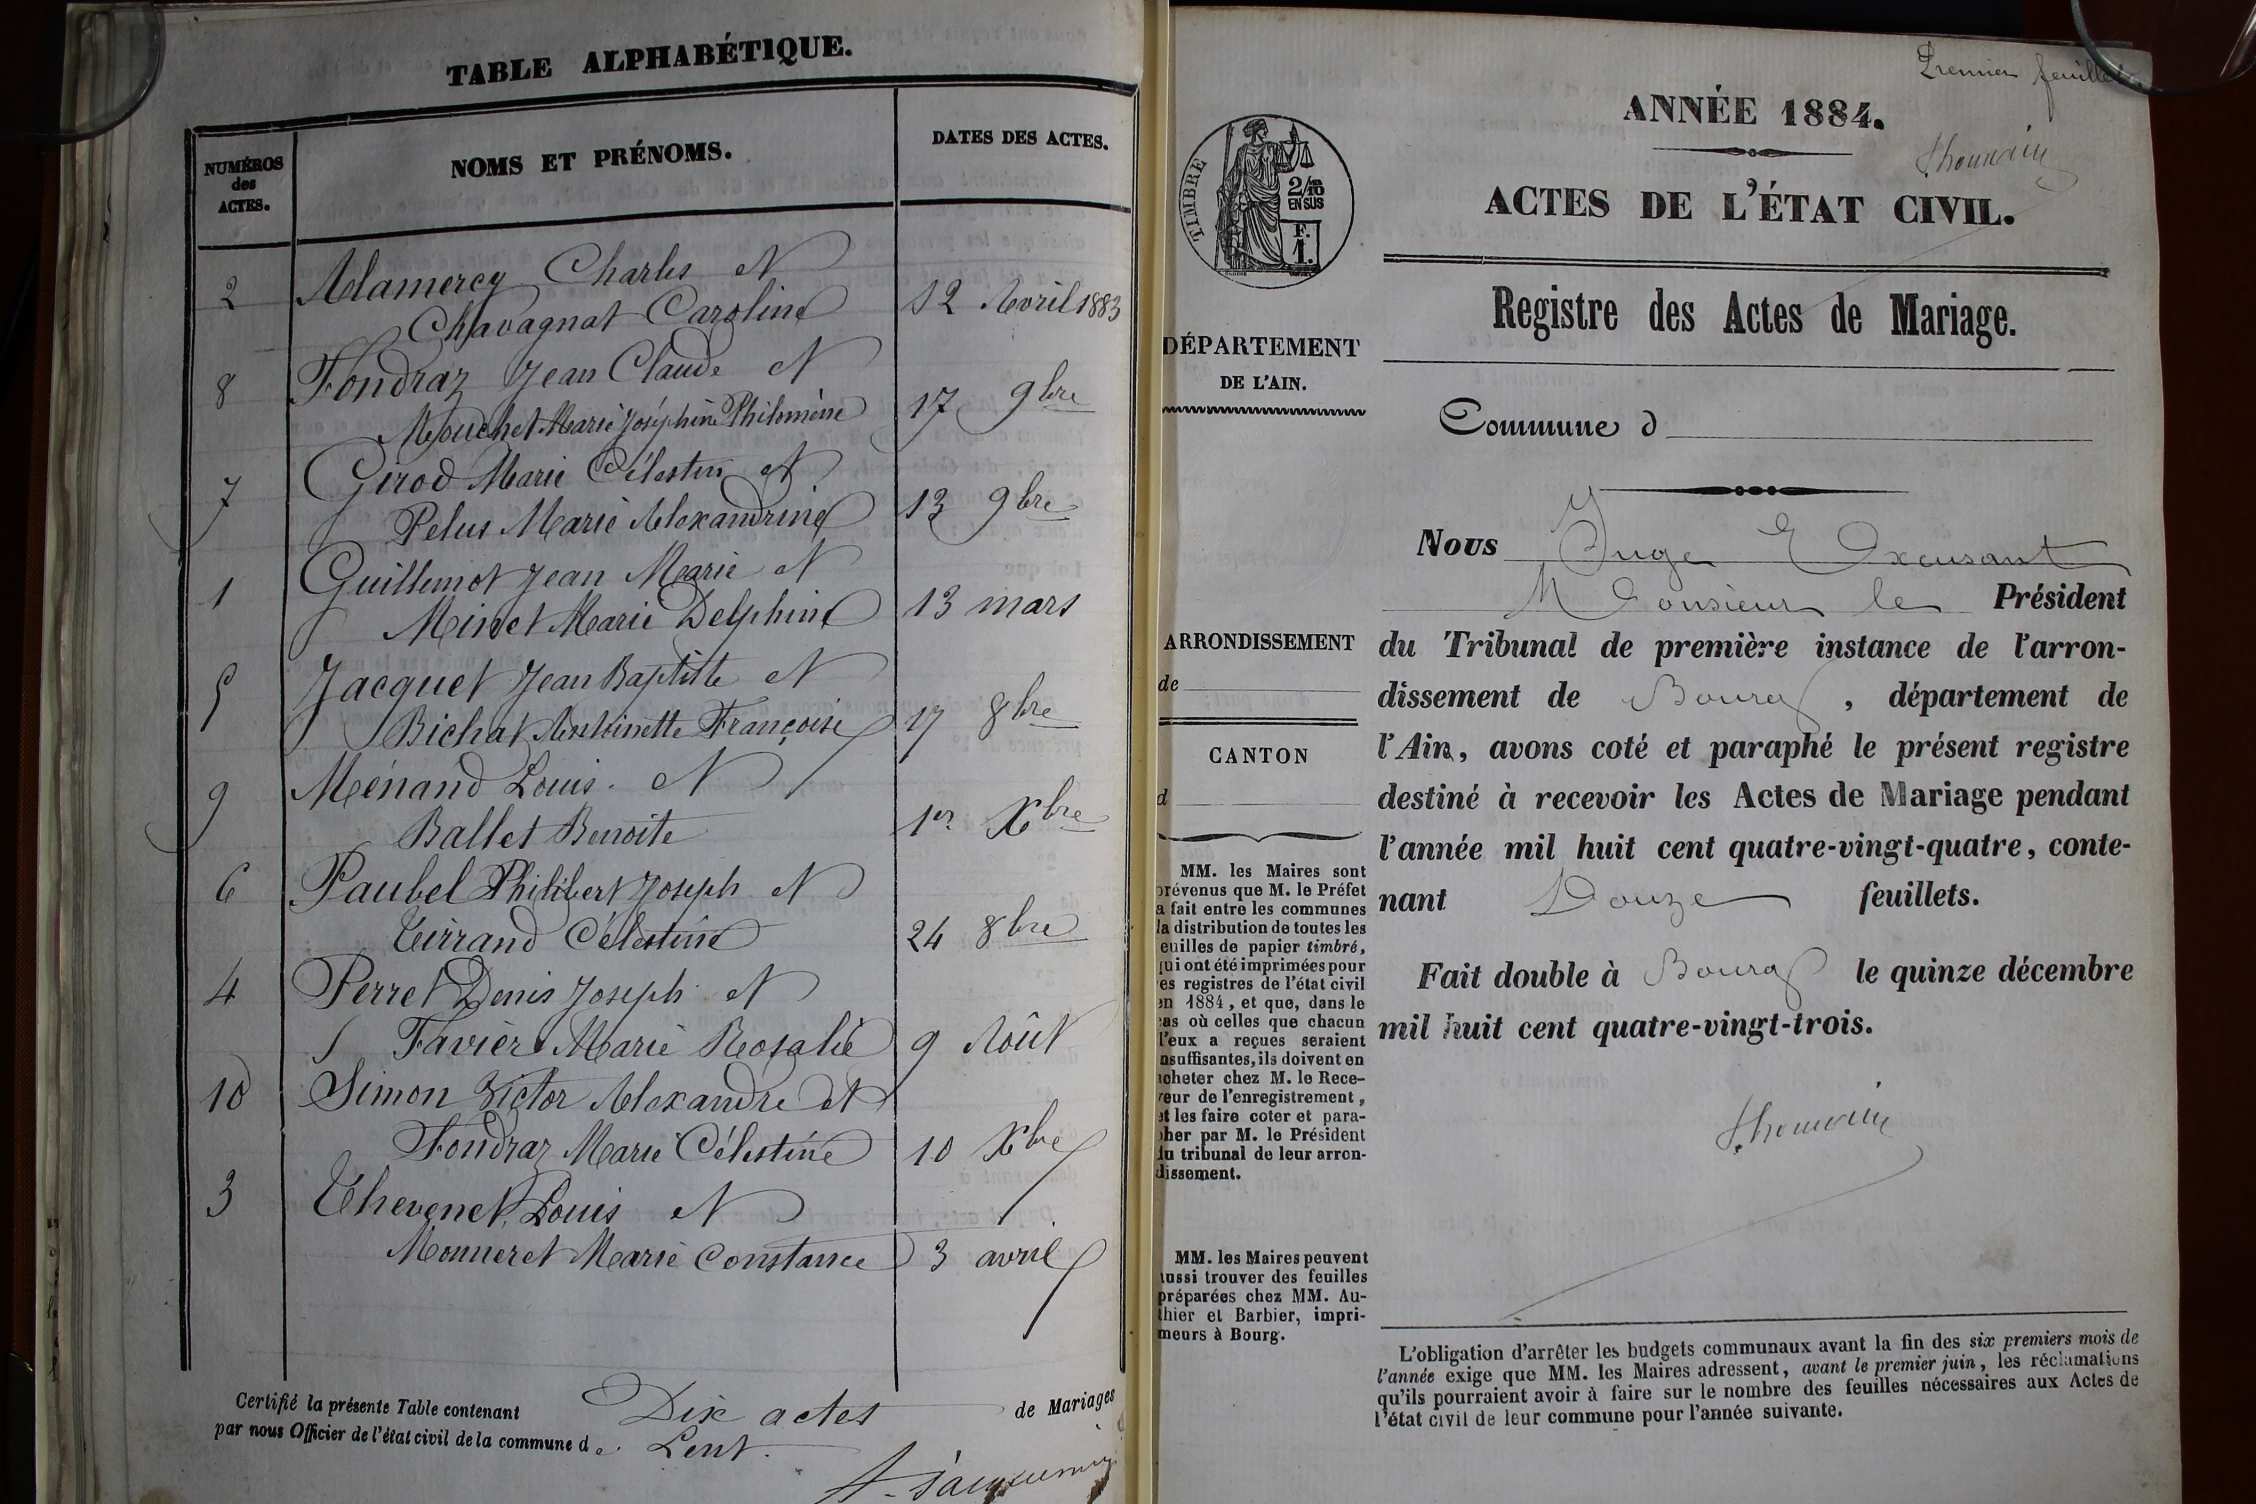 TABLE ALPHABÉTIQUE.
NUMÉROS
des
ACTES.
NOMS ET PRÉNOMS.
DATES DES ACTES.
2 Alamercy Charles et
Chavagnat Caroline 12 Avril 1883
8 Fondraz Jean Claude et
Mouchet Marie Joséphine Philomène 17 9bre
7 Girod Marie Célestin et
Pelus Marie Alexandrine 13 9bre
1 Guillemot Jean Marie et
Minet Marie Delphine 13 mars
5 Jacquet Jean Baptiste et
Bichat Antoinette Françoise 17 8bre
9 Ménand Louis et
Ballet Benoite 1er Xbre
6 Paubel Philibert Joseph et
Tirrand Célestine 24 8bre
4 Perret Denis Joseph et
Favier Marie Rosalie 9 Août
10 Simon Victor Alexandre et
Fondraz Marie Célestine 10 Xbre
3 Thevenet Louis et
Monneret Marie Constance 3 avril
Certifié la présente Table contenant Dix actes de Mariages
par nous Officier de l'état civil de la commune de Lent.
Premier feuillet
ANNÉE 1884.
ACTES DE L'ÉTAT CIVIL.
TIMBRE
2/10
EN SUS
F.
1.
Registre des Actes de Mariage.
DÉPARTEMENT
DE L'AIN.
Commune d
Nous Juge Excusant
Monsieur le Président
ARRONDISSEMENT
de
CANTON
d
du Tribunal de première instance de l'arron-
dissement de Bourg, département de
l'Ain, avons coté et paraphé le présent registre
destiné à recevoir les Actes de Mariage pendant
l'année mil huit cent quatre-vingt-quatre, conte-
nant Douze feuillets.
Fait double à Bourg le quinze décembre
mil huit cent quatre-vingt-trois.
MM. les Maires sont
prévenus que M. le Préfet
a fait entre les communes
la distribution de toutes les
feuilles de papier timbré,
qui ont été imprimées pour
les registres de l'état civil
en 1884, et que, dans le
cas où celles que chacun
d'eux a reçues seraient
insuffisantes, ils doivent en
acheter chez M. le Rece-
veur de l'enregistrement,
et les faire coter et para-
pher par M. le Président
du tribunal de leur arron-
dissement.
MM. les Maires peuvent
aussi trouver des feuilles
préparées chez MM. Au-
thier et Barbier, impri-
meurs à Bourg.
L'obligation d'arrêter les budgets communaux avant la fin des six premiers mois de
l'année exige que MM. les Maires adressent, avant le premier juin, les réclamations
qu'ils pourraient avoir à faire sur le nombre des feuilles nécessaires aux Actes de
l'état civil de leur commune pour l'année suivante.